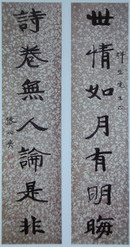 世情如月有明晦
詩卷無人論是非